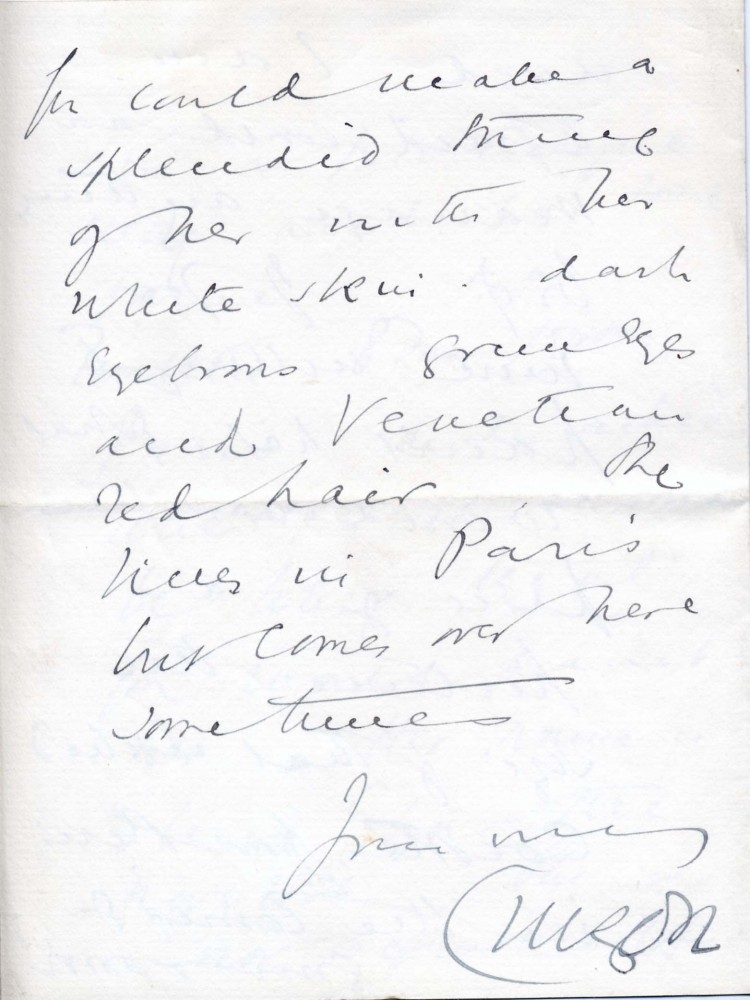 You could make a
splendid thing
of her with her
white skin. dark
Eyebrows green Eyes
and Venetian
red hair She
lives in Paris
but comes over here
sometimes
Yours
Curzon